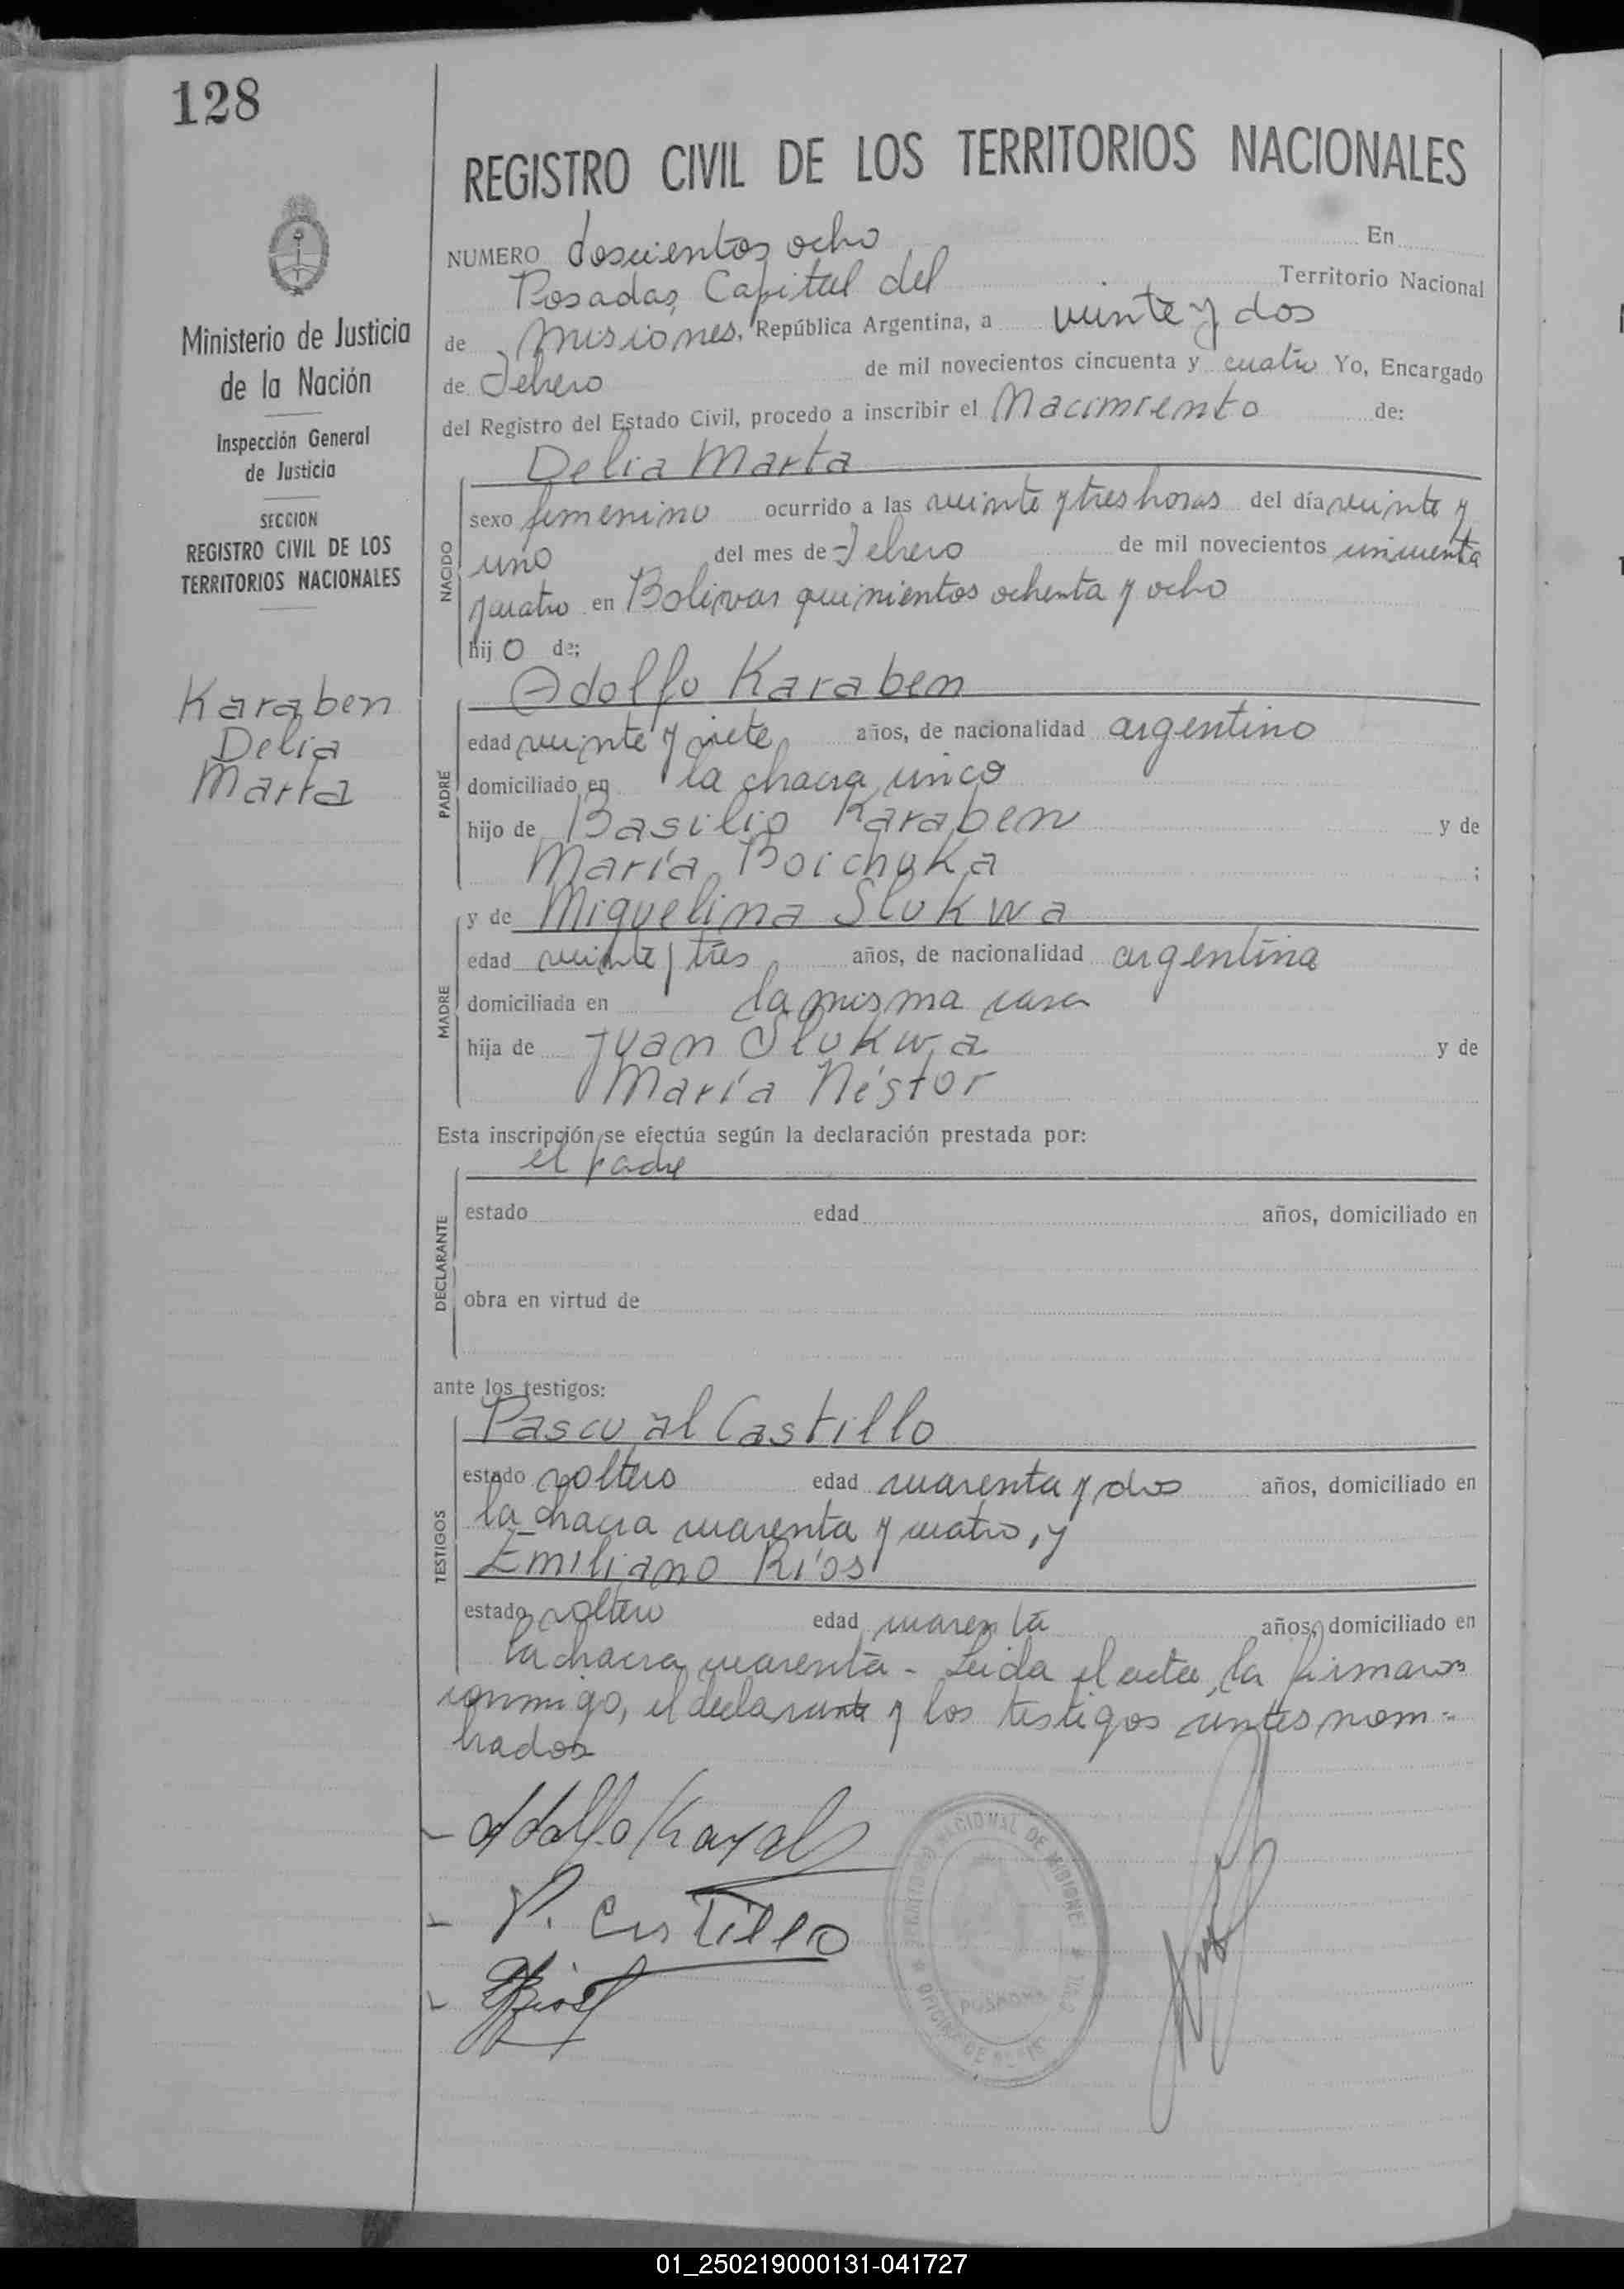 128
REGISTRO CIVIL DE LOS TERRITORIOS NACIONALES
NUMERO doscientos ocho En
Posadas, Capital del Territorio Nacional
de Misiones, República Argentina, a veinte y dos
de Febrero de mil novecientos cincuenta y cuatro Yo, Encargado
del Registro del Estado Civil, procedo a inscribir el Nacimiento de:
Delia Marta
sexo femenino ocurrido a las veinte y tres horas del día veinte y
uno del mes de Febrero de mil novecientos cincuenta
y cuatro en Bolivar quinientos ochenta y ocho
hij o de:
Adolfo Karaben
edad veinte y siete años, de nacionalidad argentino
domiciliado en la chacra única
hijo de Basilio Karaben y de
María Boichuka ;
y de Miguelina Slukwa
edad veinte y tres años, de nacionalidad argentina
domiciliada en la misma casa
hija de Juan Slukwa y de
María Néstor
Esta inscripción se efectúa según la declaración prestada por:
el padre
estado edad años, domiciliado en
obra en virtud de
ante los testigos:
Pascual Castillo
estado soltero edad cuarenta y dos años, domiciliado en
la chacra cuarenta y cuatro, y
Emiliano Ríos
estado soltero edad cuarenta años, domiciliado en
la chacra cuarenta - Leida el acta, la firmaron
conmigo, el declarante y los testigos antes nom-
brados
NACIDO
PADRE
MADRE
DECLARANTE
TESTIGOS
Ministerio de Justicia
de la Nación
Inspección General
de Justicia
SECCION
REGISTRO CIVIL DE LOS
TERRITORIOS NACIONALES
Karaben
Delia
Marta
Adolfo Karab
P. Castillo
Rios
NACIONAL DE MISIONE
POSADAS
01_250219000131-041727